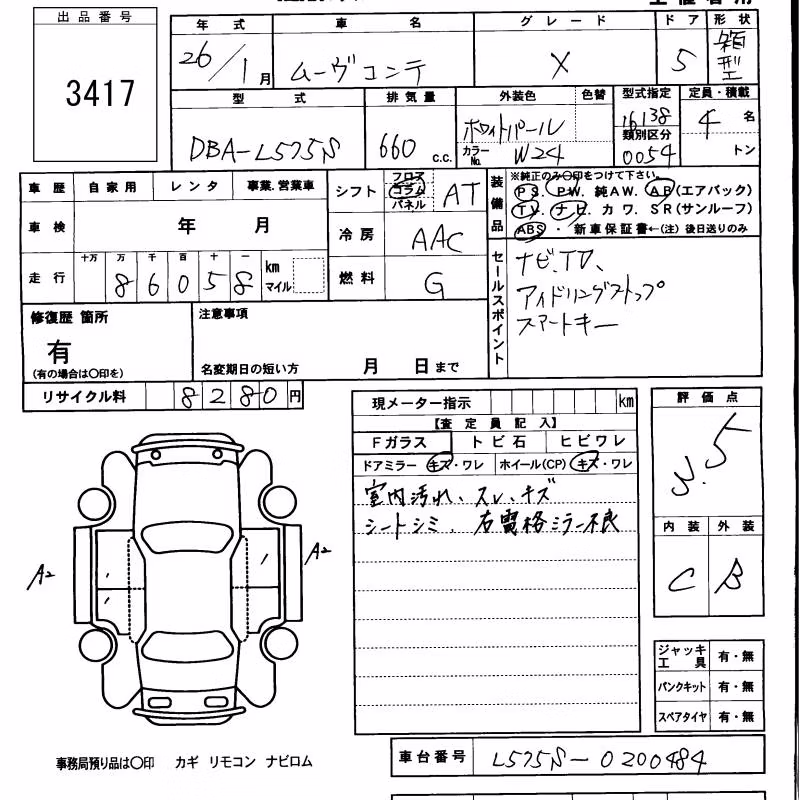 出品番号
3417
年式 車名 グレード ドア 形状
26/1月 ムーヴコンテ X 5 箱型
型式 排気量 外装色 色替 型式指定 定員・積載
DBA-L575S 660 c.c. ホワイトパール 16138 4名
カラーNo. W24 類別区分 0054 トン
車歴 自家用 レンタ 事業.営業車
シフト フロア コラム パネル AT
装備品 ※純正のみ〇印をつけて下さい。
PS. PW. 純AW. AB(エアバック)
TV. ナビ. カワ. SR(サンルーフ)
ABS ・ 新車保証書←(注) 後日送りのみ
車検 年 月
冷房 AAC
走行 十万 万 千 百 十 一
86058 km マイル
燃料 G
セールスポイント
ナビ、TV、
アイドリングストップ
スマートキー
修復歴 箇所
有
(有の場合は〇印を)
注意事項
名変期日の短い方 月 日まで
リサイクル料 8280円
現メーター指示 km
【査定員記入】
Fガラス トビ石 ヒビワレ
ドアミラー キズ・ワレ ホイール(CP) キズ・ワレ
室内汚れ、スレ、キズ
シートシミ、右電格ミラー不良
評価点
3.5
内装 外装
C B
A2 A2
ジャッキ工具 有・無
パンクキット 有・無
スペアタイヤ 有・無
事務局預り品は〇印 カギ リモコン ナビロム
車台番号 L575S-0200484